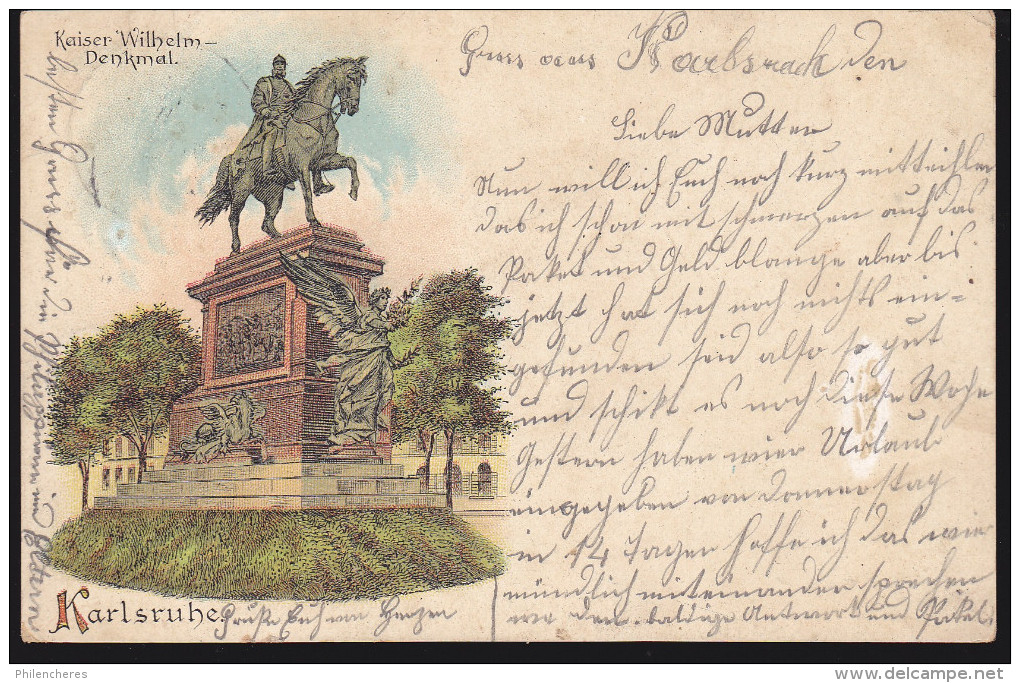 Kaiser Wilhelm-
Denkmal.
Gruss aus Karlsruh den
Liebe Mutter
Nun will ich Euch noch kurz mitteihlen
das ich schon mit schmerzen auf das
Paket und Geld blange aber bis
jetzt hat sich noch nichts ein=
gefunden seid also so gut
und schikt es noch diese Wohe
Gestern haben wier Urlaub
eingegeben von Donnerstag
in 14 Tagen hoffe ich das wier
mündlich miteinander sprechen
baldige Antwort und Paket
Karlsruhe.
Grüße Euch von Herzen
Philencheres
www.delcampe.net